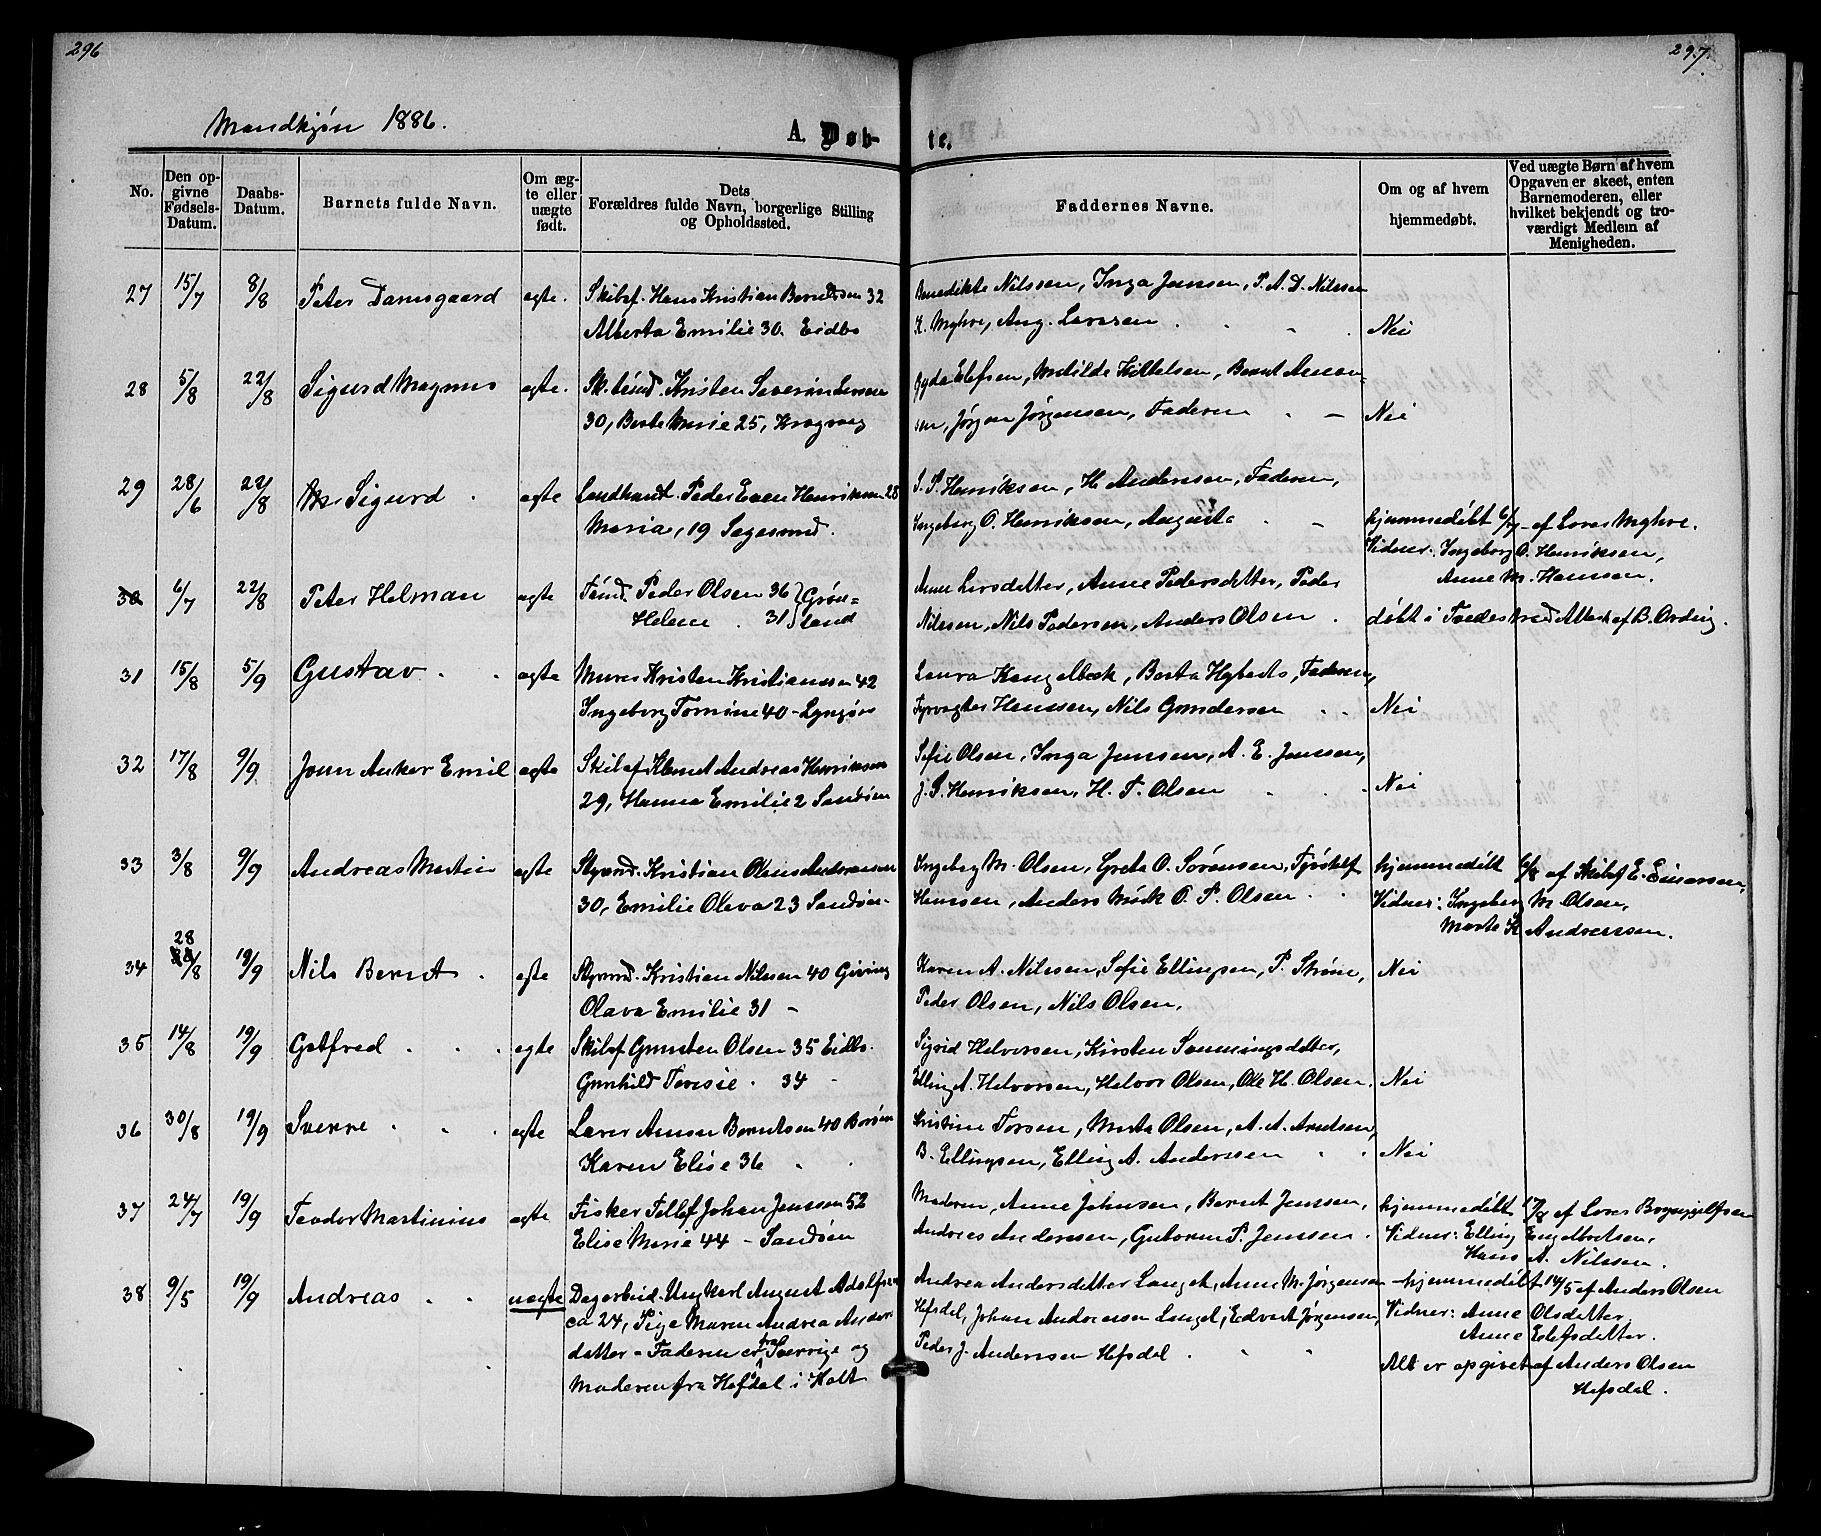 296
297.
Mandkjøn 1886.
A. Døb-
te.
No.
Den op-
givne
Fødsels-
Datum.
Daabs-
Datum.
Barnets fulde Navn.
Om æg-
te eller
uægte
født.
Dets
Forældres fulde Navn, borgerlige Stilling
og Opholdssted.
Faddernes Navne.
Om og af hvem
hjemmedøbt.
Ved uægte Børn af hvem
Opgaven er skeet, enten
Barnemoderen, eller
hvilket bekjendt og tro-
værdigt Medlem af
Menigheden.
27 15/7 8/8 Peter Damsgaard ægte. Skibsf. Hans Kristian Berntsen 32
Alberta Emilie 30. Eidbo
Benedikte Nilssen, Inga Jansen, P. A. D. Nilssen
K. Myhre, Aug. Larssen Nei
28 5/8 22/8 Sigurd Magnus ægte. Sk.tømd. Kristen Severin Larssen
30, Berte Marie 25, Krogvaag
Gyda Elefsen, Matilde Kittelsen, Bernt Amon-
sen, Jørgen Jørgensen, Faderen - Nei
29 28/6 22/8 Sigurd ægte Landhand. Peder Even Henriksen 28
Maria, 19 Sagesund.
S. S. Henriksen, H. Anderssen, Faderen,
Ingeborg O. Henriksen, Augusta - hjemmedøbt 6/7 af Lærer Myhre.
Vidner: Ingeborg O. Henriksen,
Anne M. Hanssen.
30 6/7 22/8 Peter Helman ægte Tømd. Peder Olsen 36 } Grøn=
Helene 31 } land
Anne Larsdatter, Anne Pedersdatter, Peder
Nilssen, Nils Pedersen, Anders Olsen døbt i Tvedestrand Attest af B. Ording.
31 15/8 5/9 Gustav ægte Murer Kristen Kristianssen 42
Ingeborg Tomine 40 - Lyngør
Laura Kengelbæk, Berta Hyberts, Faderen,
Fyrvogter Hanssen, Nils Gundersen Nei
32 17/8 9/9 Jonn Anker Emil ægte Skibsf Klemet Andreas Henriksen
29, Hanna Emilie 2 Sandøen
Sofie Olsen, Inga Jenssen, A. E. Jenssen,
J. S. Henriksen, H. T. Olsen Nei
33 3/8 9/9 Andreas Martin ægte Styrmd. Kristian Olaus Andreassen
30, Emilie Olava 23 Sandøen
Ingeborg M. Olsen, Grete O. Sørensen,
Hanssen, Anders Mørk O. P. Olsen hjemmedøbt 6/8 af Skibsf E. Einersen,
Vidner: Ingeborg M. Olsen,
Marte K Andreassen.
28
34 /8 19/9 Nils Bernt ægte Styrmd. Kristian Nilssen 40 Giving
Olava Emilie 31 -
Karen A. Nilssen, Sofie Ellingsen, P. Strøm, Nei
Peder Olsen, Nils Olsen.
35 14/8 19/9 Gotfred ægte Skibsf Gunsten Olsen 35 Eidbo.
Gunhild Teresie 34
Sigrid Helvorsen, Kirsten Sanningsdatter,
Elling A. Helvorsen, Helvor Olsen, Ole H. Olsen. Nei
36 30/8 19/9 Sverre ægte Lærer Amon Berntsen 40 Borøen
Karen Elise 36
Kristine Torsen, Marta Olsen, A. A. Arntsen,
B. Ellingsen, Elling A. Anderssen Nei
37 24/7 19/9 Teodor Martinius ægte Fisker Tellef Johan Jenssen 52
Elise Marie 44 - Sandøen
Moderen, Anne Johnsen, Bernt Jenssen,
Andreas Anderssen, Gutorm P. Jenssen. hjemmedøbt 17/8 af Lærer Brynjulfsen
Vidner: Elling Engelbretsen,
Hans A. Nilssen.
38 9/5 19/9 Andreas uægte Dagarbeid. Ungkarl August Adolfsen
ca 24, Pige Maren Andrea Anders
datter - Faderen er fra Sverrige og
Moderen fra Hefsdal i Holt
Andrea Andersdatter Langet, Anne M. Jørgensen
Hefsdal, Johan Anderssen Langet, Edvart Jørgensen,
Peder J. Anderssen Hefsdal hjemmedøbt 14/5 af Anders Olsen
Vidner: Anne Olsdatter
Anne Elefsdatter.
Alt er opgivet af Anders Olsen
Hefsdal.